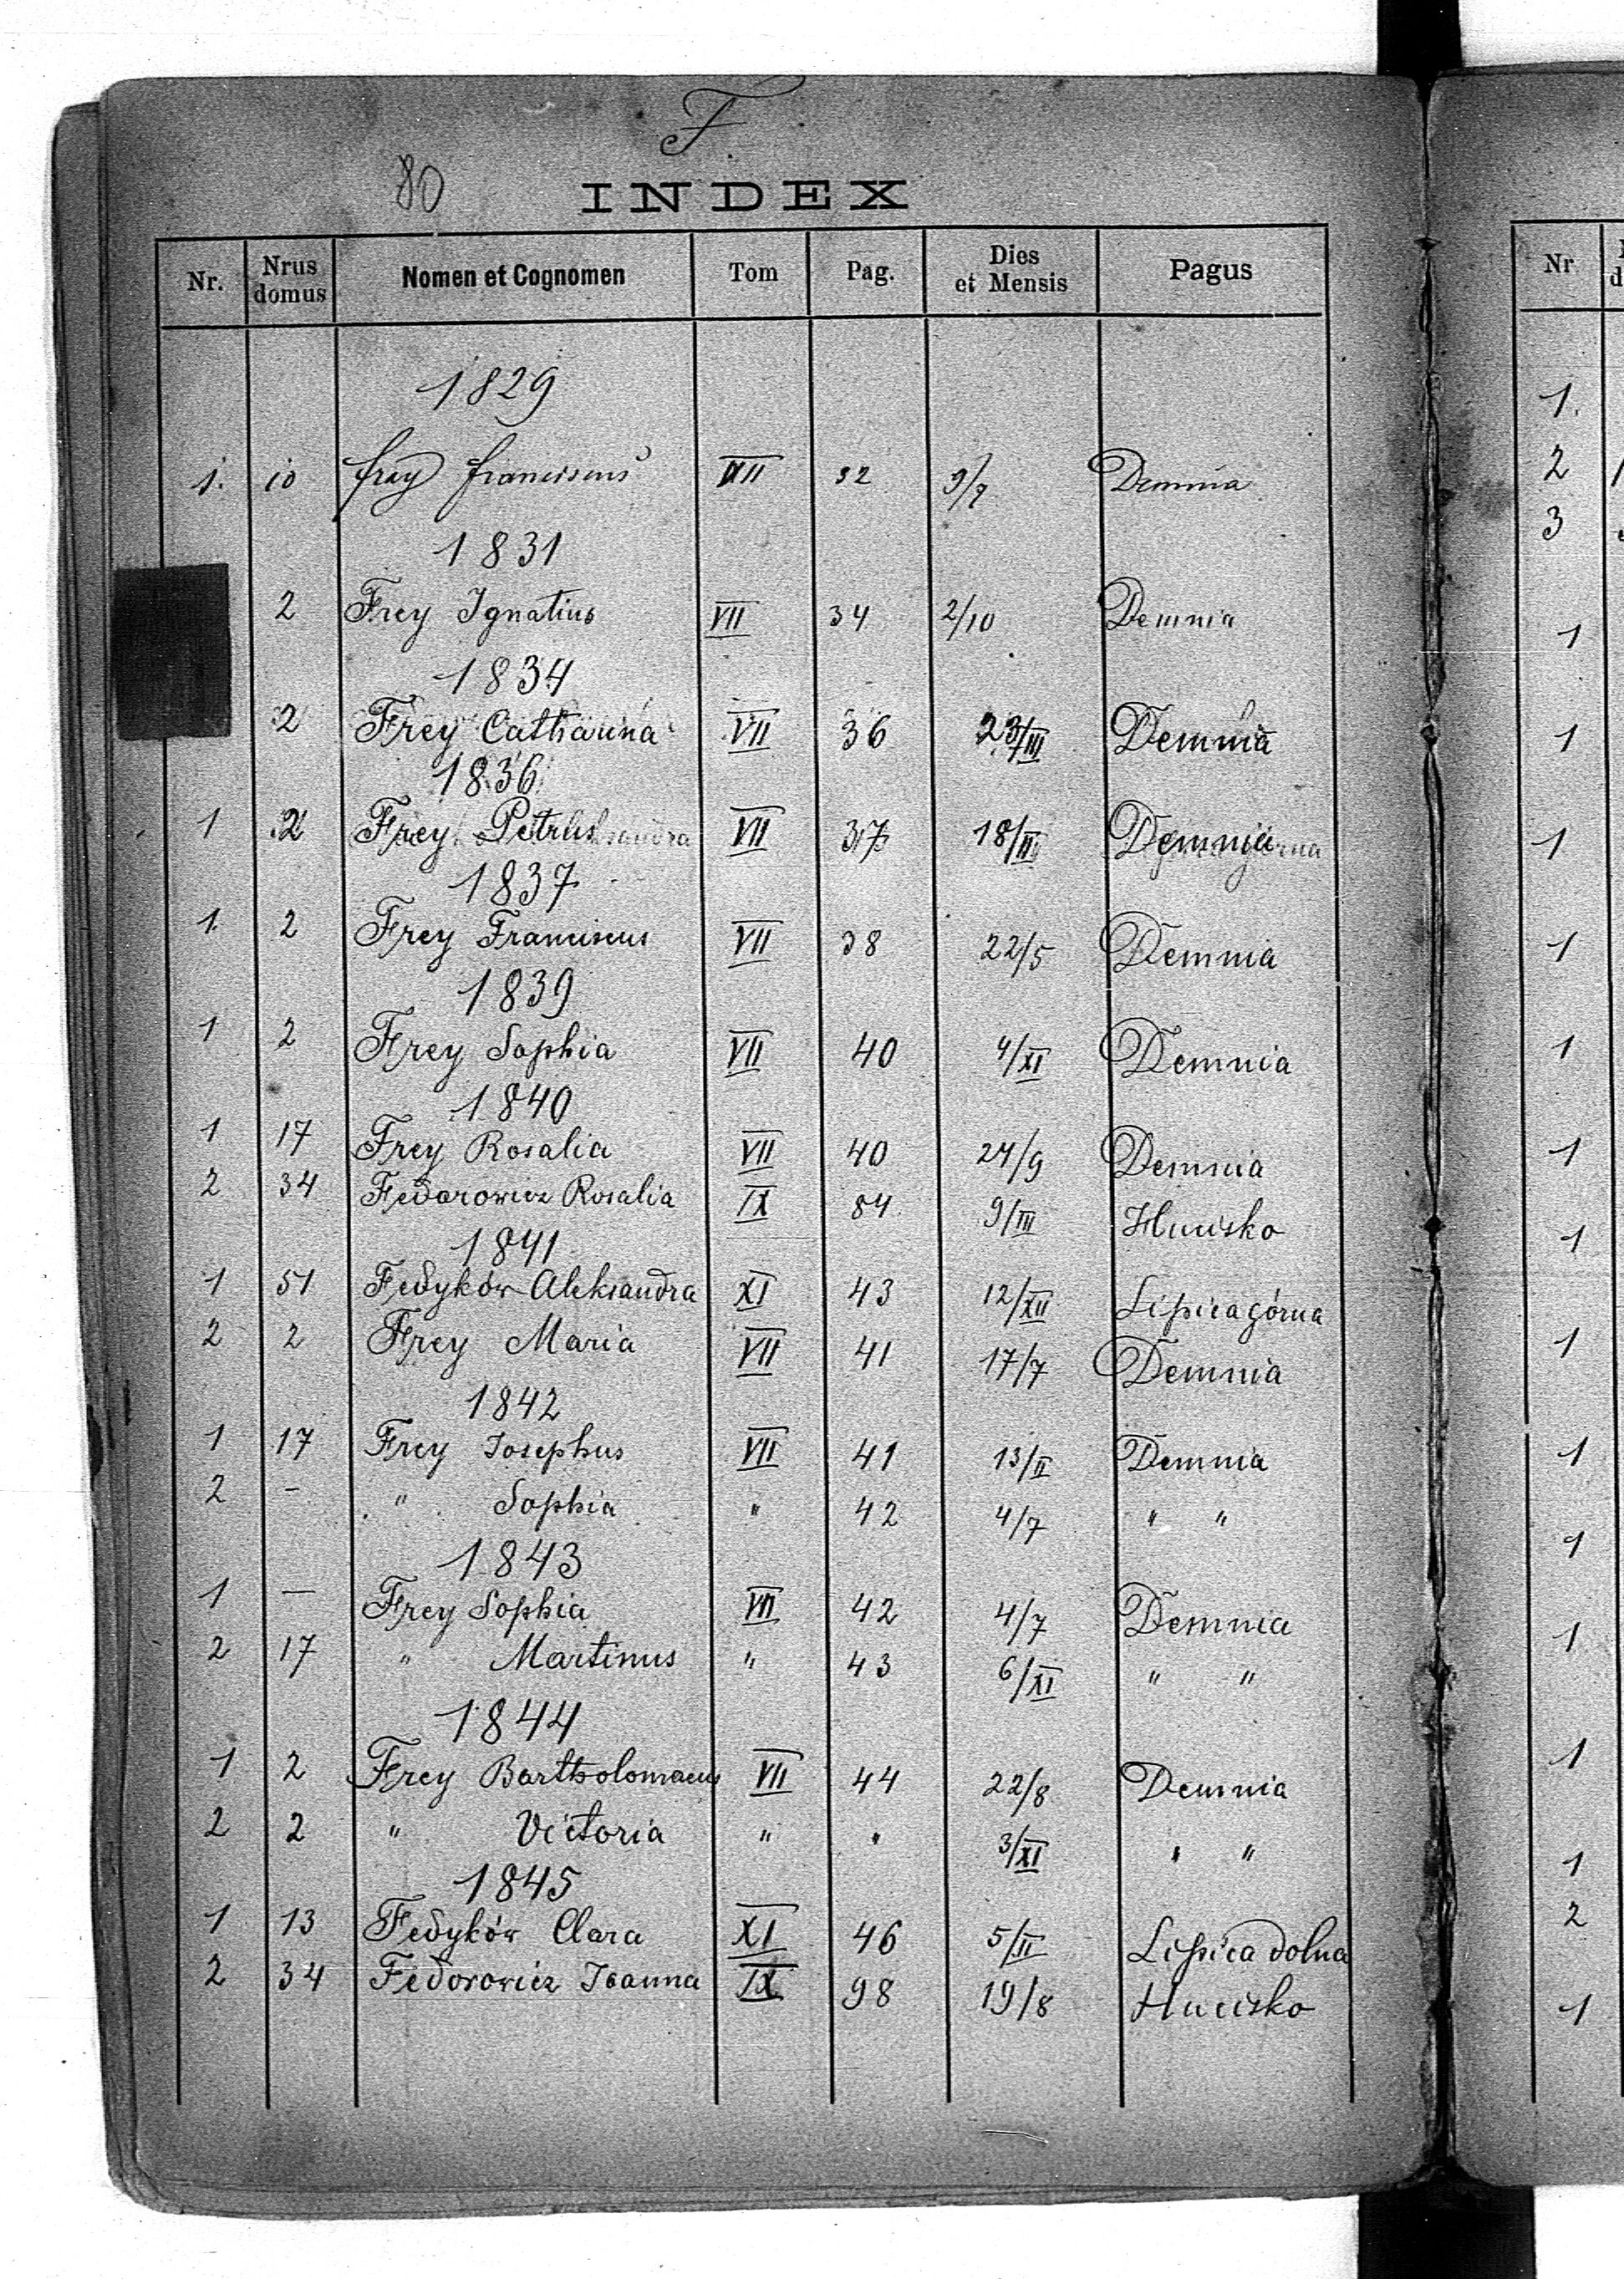 F.
80
INDEX
Nr. Nrus domus Nomen et Cognomen Tom Pag. Dies et Mensis Pagus
1829
1. 10 Frey Franciscus VII 32 9/7 Demnia
1831
2 Frey Ignatius VII 34 2/10 Demnia
1834
2 Frey Catharina VII 36 23/III Demnia
1836
1 2 Frey Petrus VII 37 18/II Demnia
1837
1. 2 Frey Franciscus VII 38 22/5 Demnia
1839
1 2 Frey Sophia VII 40 4/XI Demnia
1840
1 17 Frey Rosalia VII 40 24/9 Demnia
2 34 Fedorowicz Rosalia IX 84 9/III Hucisko
1841
1 51 Fedyków Aleksandra XI 43 12/XII Lipica górna
2 2 Frey Maria VII 41 17/7 Demnia
1842
1 17 Frey Josephus VII 41 13/II Demnia
2 - " Sophia " 42 4/7 " "
1843
1 — Frey Sophia VII 42 4/7 Demnia
2 17 " Martinus " 43 6/XI " "
1844
1 2 Frey Bartholomaeus VII 44 22/8 Demnia
2 2 " Victoria " " 3/XI " "
1845
1 13 Fedyków Clara XI 46 5/II Lipica dolna
2 34 Fedorowicz Joanna IX 98 19/8 Hucisko
Nr
1.
2
3
1
1
1
1
1
1
1
1
1
1
1
1
1
2
1